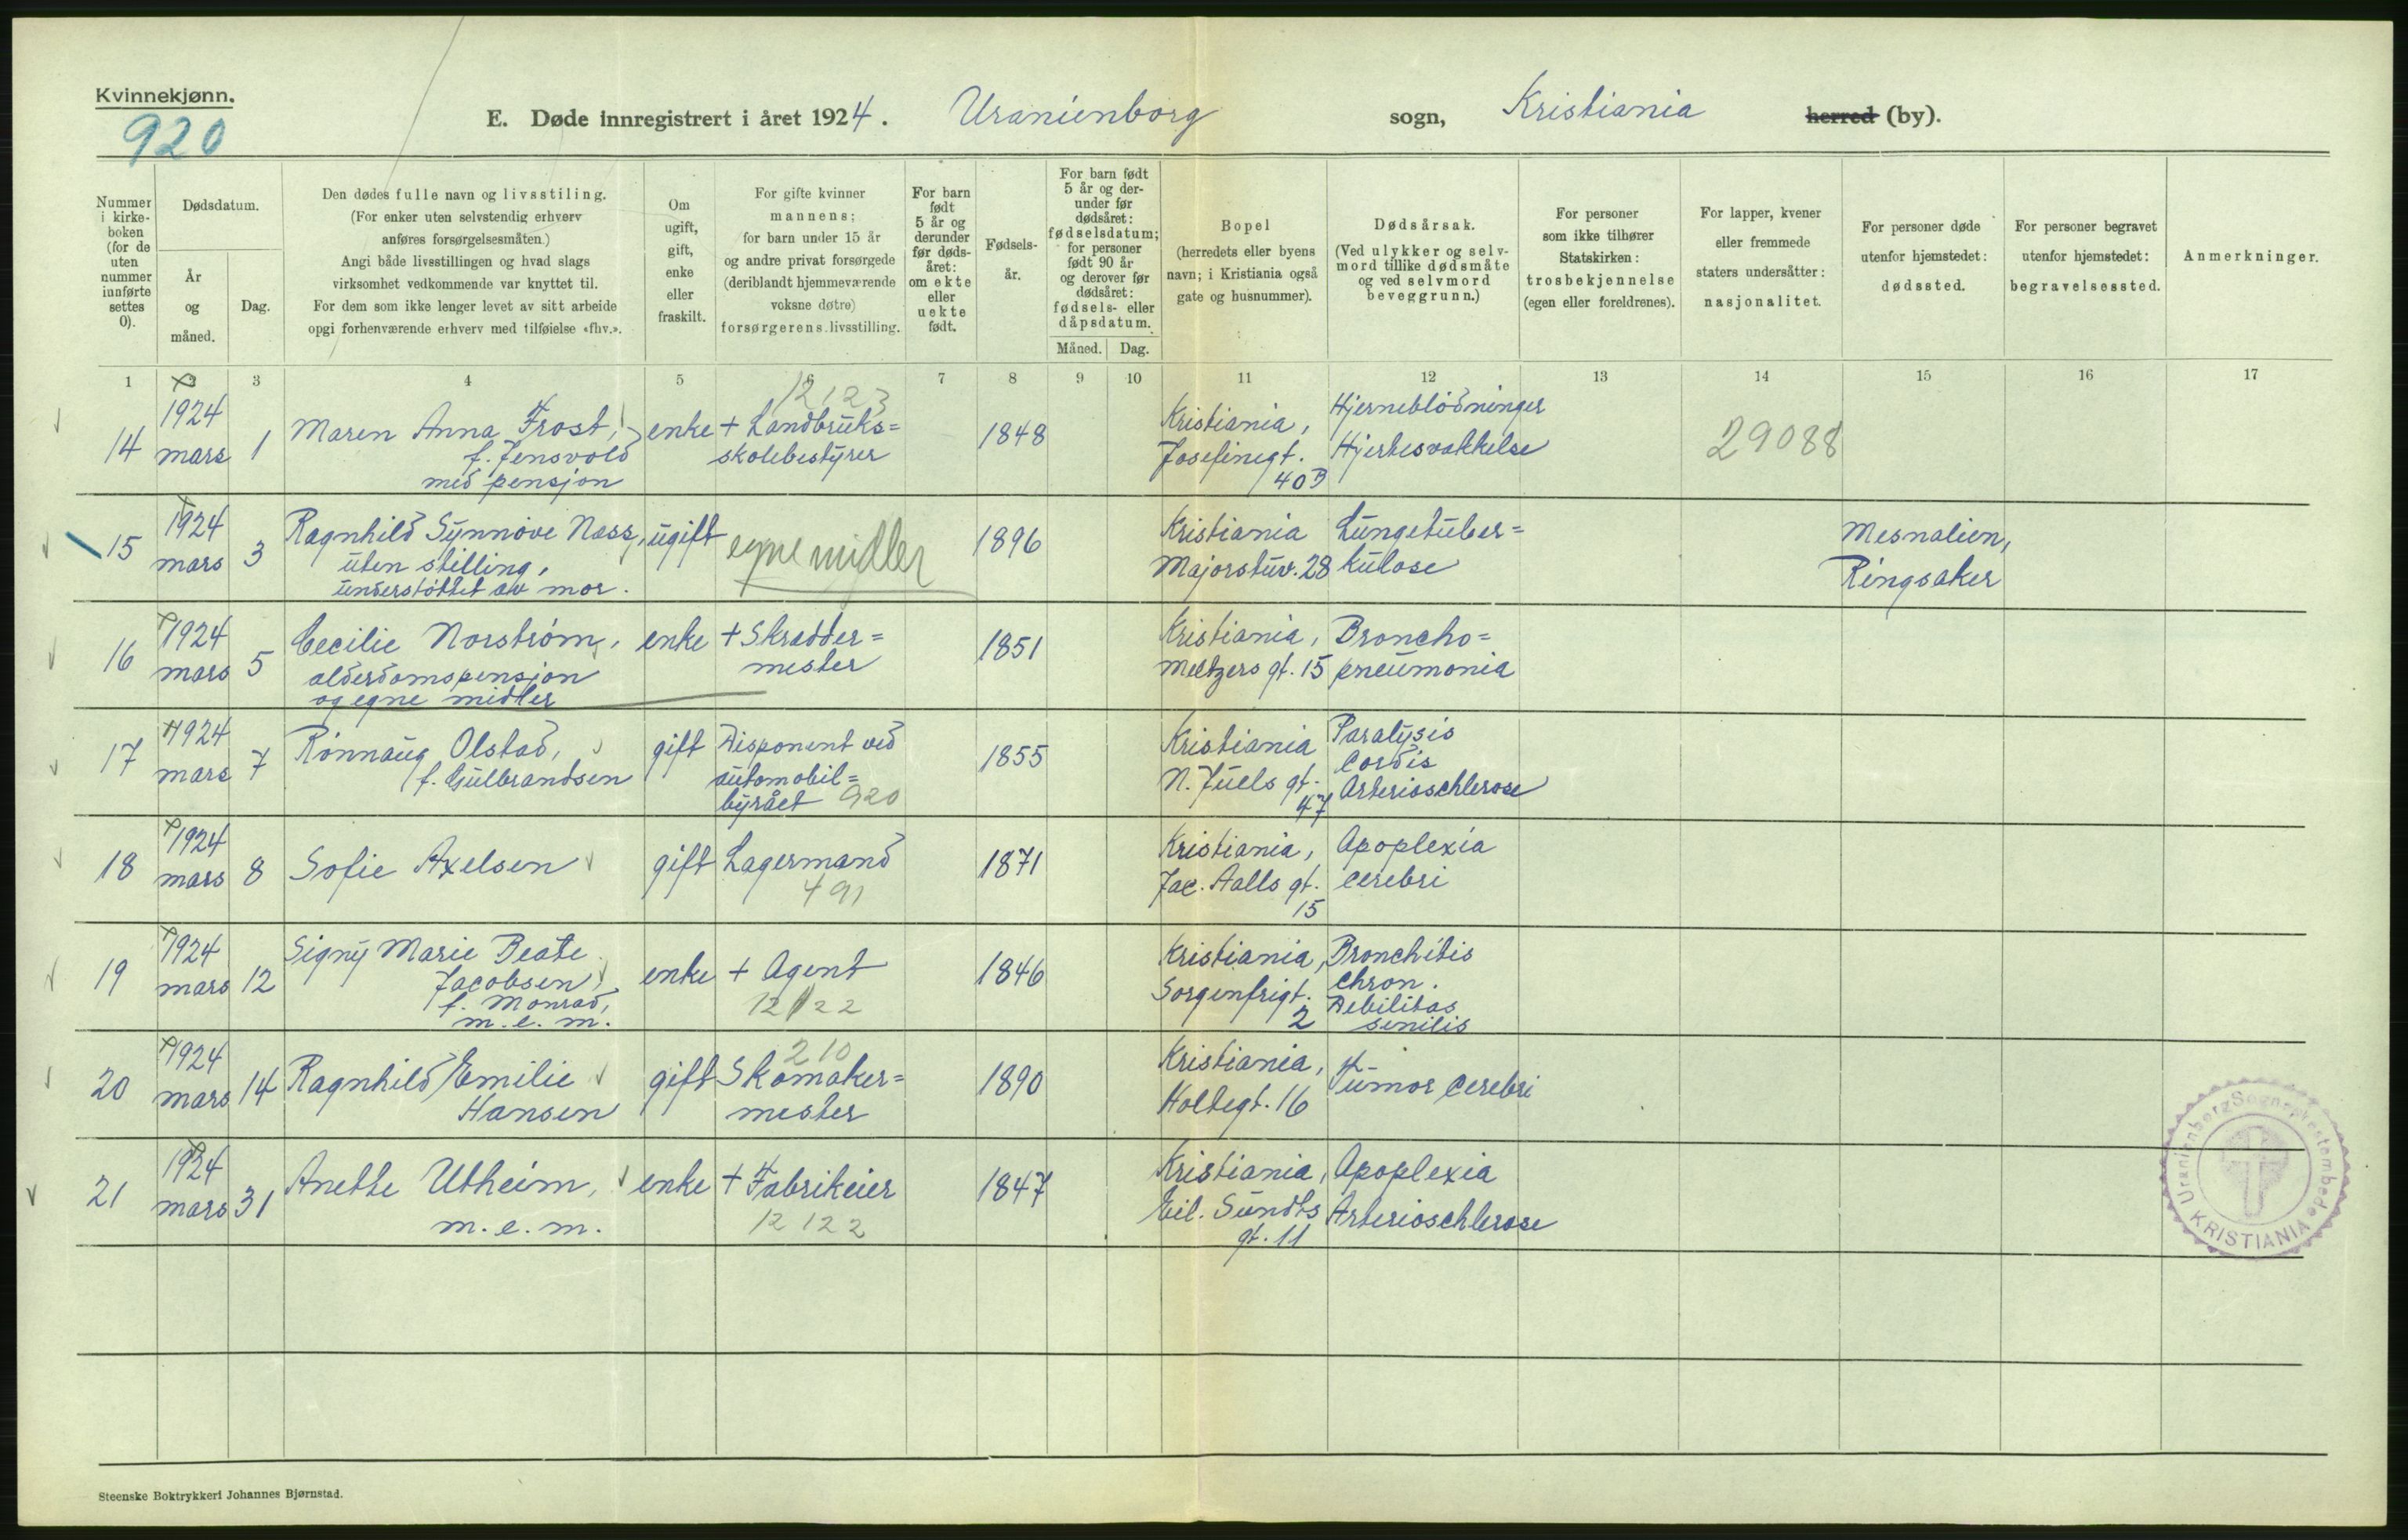 Kvinnekjønn.
920
E. Døde innregistrert i året 1924. Uranienborg sogn, Kristiania herred (by).
Nummer i kirke-boken (for de uten nummer innførte settes 0).
Dødsdatum.
År og måned.
Dag.
Den dødes fulle navn og livsstiling.
(For enker uten selvstendig erhverv
anføres forsørgelsesmåten.)
Angi både livsstillingen og hvad slags
virksomhet vedkommende var knyttet til.
For dem som ikke lenger levet av sitt arbeide
opgi forhenværende erhverv med tilføielse «fhv.».
Om ugift, gift, enke eller fraskilt.
For gifte kvinner
mannens;
for barn under 15 år
og andre privat forsørgede
(deriblandt hjemmeværende
voksne døtre)
forsørgerens livsstilling.
For barn født 5 år og derunder før døds-året: om ekte eller uekte født.
Fødsels-år.
For barn født 5 år og der-under før dødsåret: fødselsdatum; for personer født 90 år og derover før dødsåret: fødsels- eller dåpsdatum.
Måned. Dag.
Bopel
(herredets eller byens
navn; i Kristiania også
gate og husnummer).
Dødsårsak.
(Ved ulykker og selv-
mord tillike dødsmåte
og ved selvmord
beveggrunn.)
For personer
som ikke tilhører
Statskirken:
trosbekjennelse
(egen eller foreldrenes).
For lapper, kvener
eller fremmede
staters undersåtter:
nasjonalitet.
For personer døde
utenfor hjemstedet:
dødssted.
For personer begravet
utenfor hjemstedet:
begravelsessted.
Anmerkninger.
1 2 3 4 5 6 7 8 9 10 11 12 13 14 15 16 17
12123
14 1924 mars 1 Maren Anna Frost, enke + Landbruks= 1848 Kristiania, Hjerneblødninger
f. Jensvold skolebestyrer Josefinegt. Hjertesvakkelse 29088
med pensjon 40B
15 1924 mars 3 Ragnhild Synnøve Næss, ugift egne midler 1896 Kristiania Lungetuber= Mesnalien,
uten stilling, Majorstuv. 28 kulose Ringsaker
understøttet av mor.
16 1924 mars 5 Cecilie Norstrøm, enke + Skrædder= 1851 Kristiania, Broncho=
alderdomspensjon mester Meltzers gt. 15 pneumonia
og egne midler
17 1924 mars 7 Rønnaug Olstad, gift Disponent ved 1855 Kristiania Paralysis
f. Gulbrandsen automobil= N. Juels gt. Cordis
byrået 920 47 Arterioschlerose
18 1924 mars 8 Sofie Axelsen gift Lagermand 1871 Kristiania, Apoplexia
491 Jac. Aalls gt. cerebri
15
19 1924 mars 12 Signy Marie Beate enke + Agent 1846 Kristiania, Bronchitis
Jacobsen Sorgenfrigt. chron.
f. Monrad, 12122 2 Debilitas
m. e. m. senilis
210
20 1924 mars 14 Ragnhild Emilie gift Skomaker= 1890 Kristiania, Tumor cerebri
Hansen mester Holtegt. 16
21 1924 mars 31 Anette Utheim, enke + Fabrikeier 1847 Kristiania, Apoplexia
m. e. m. 12122 Eil. Sundts Arterioschlerose
gt. 11
Uranienborg Sogneprestembede
KRISTIANIA
Steenske Boktrykkeri Johannes Bjørnstad.